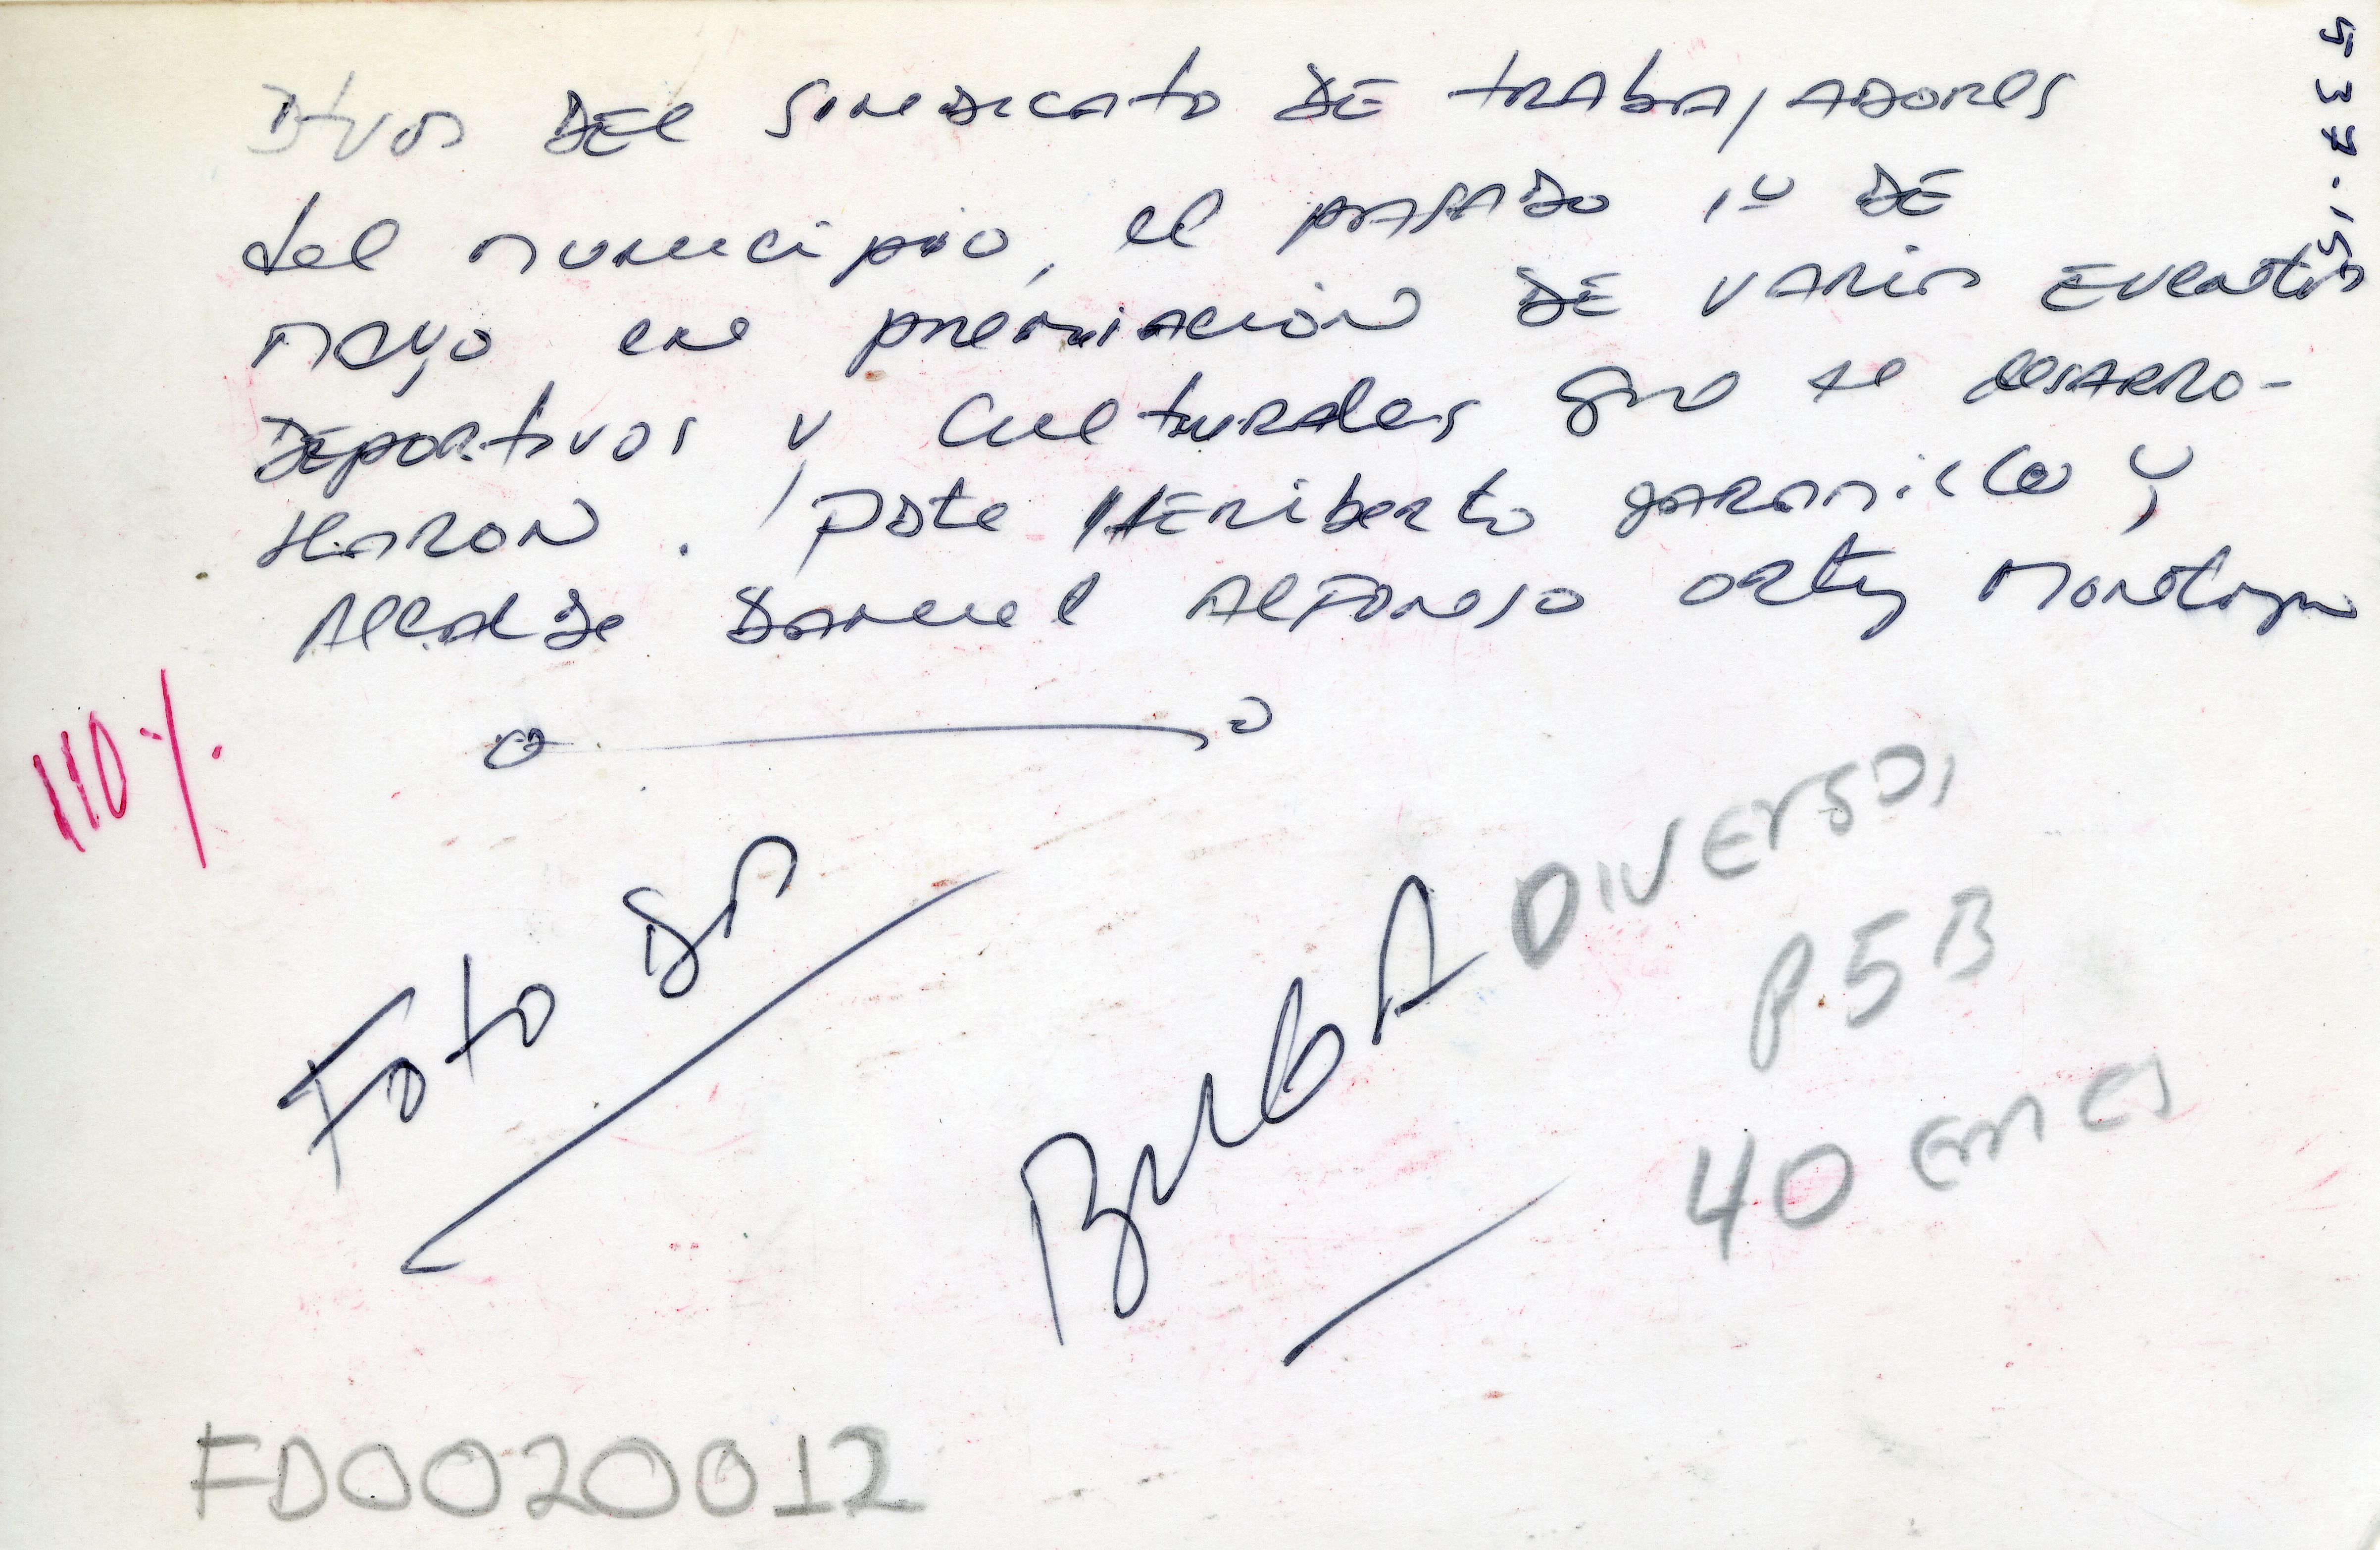 Dtvos DEl Sindicato DE trabajADORES
del municipio, el pasado 1º DE
mayo en premiacion DE varios Eventos
DEportivos y Culturales que se desarro-
llaron. Pdte HEriberto Jaramillo y
Alcalde Daniel Alfonso Ortiz Montoya
110%
Foto
BugA
DIVERSO,
P. 5B
40 emes
FD0020012